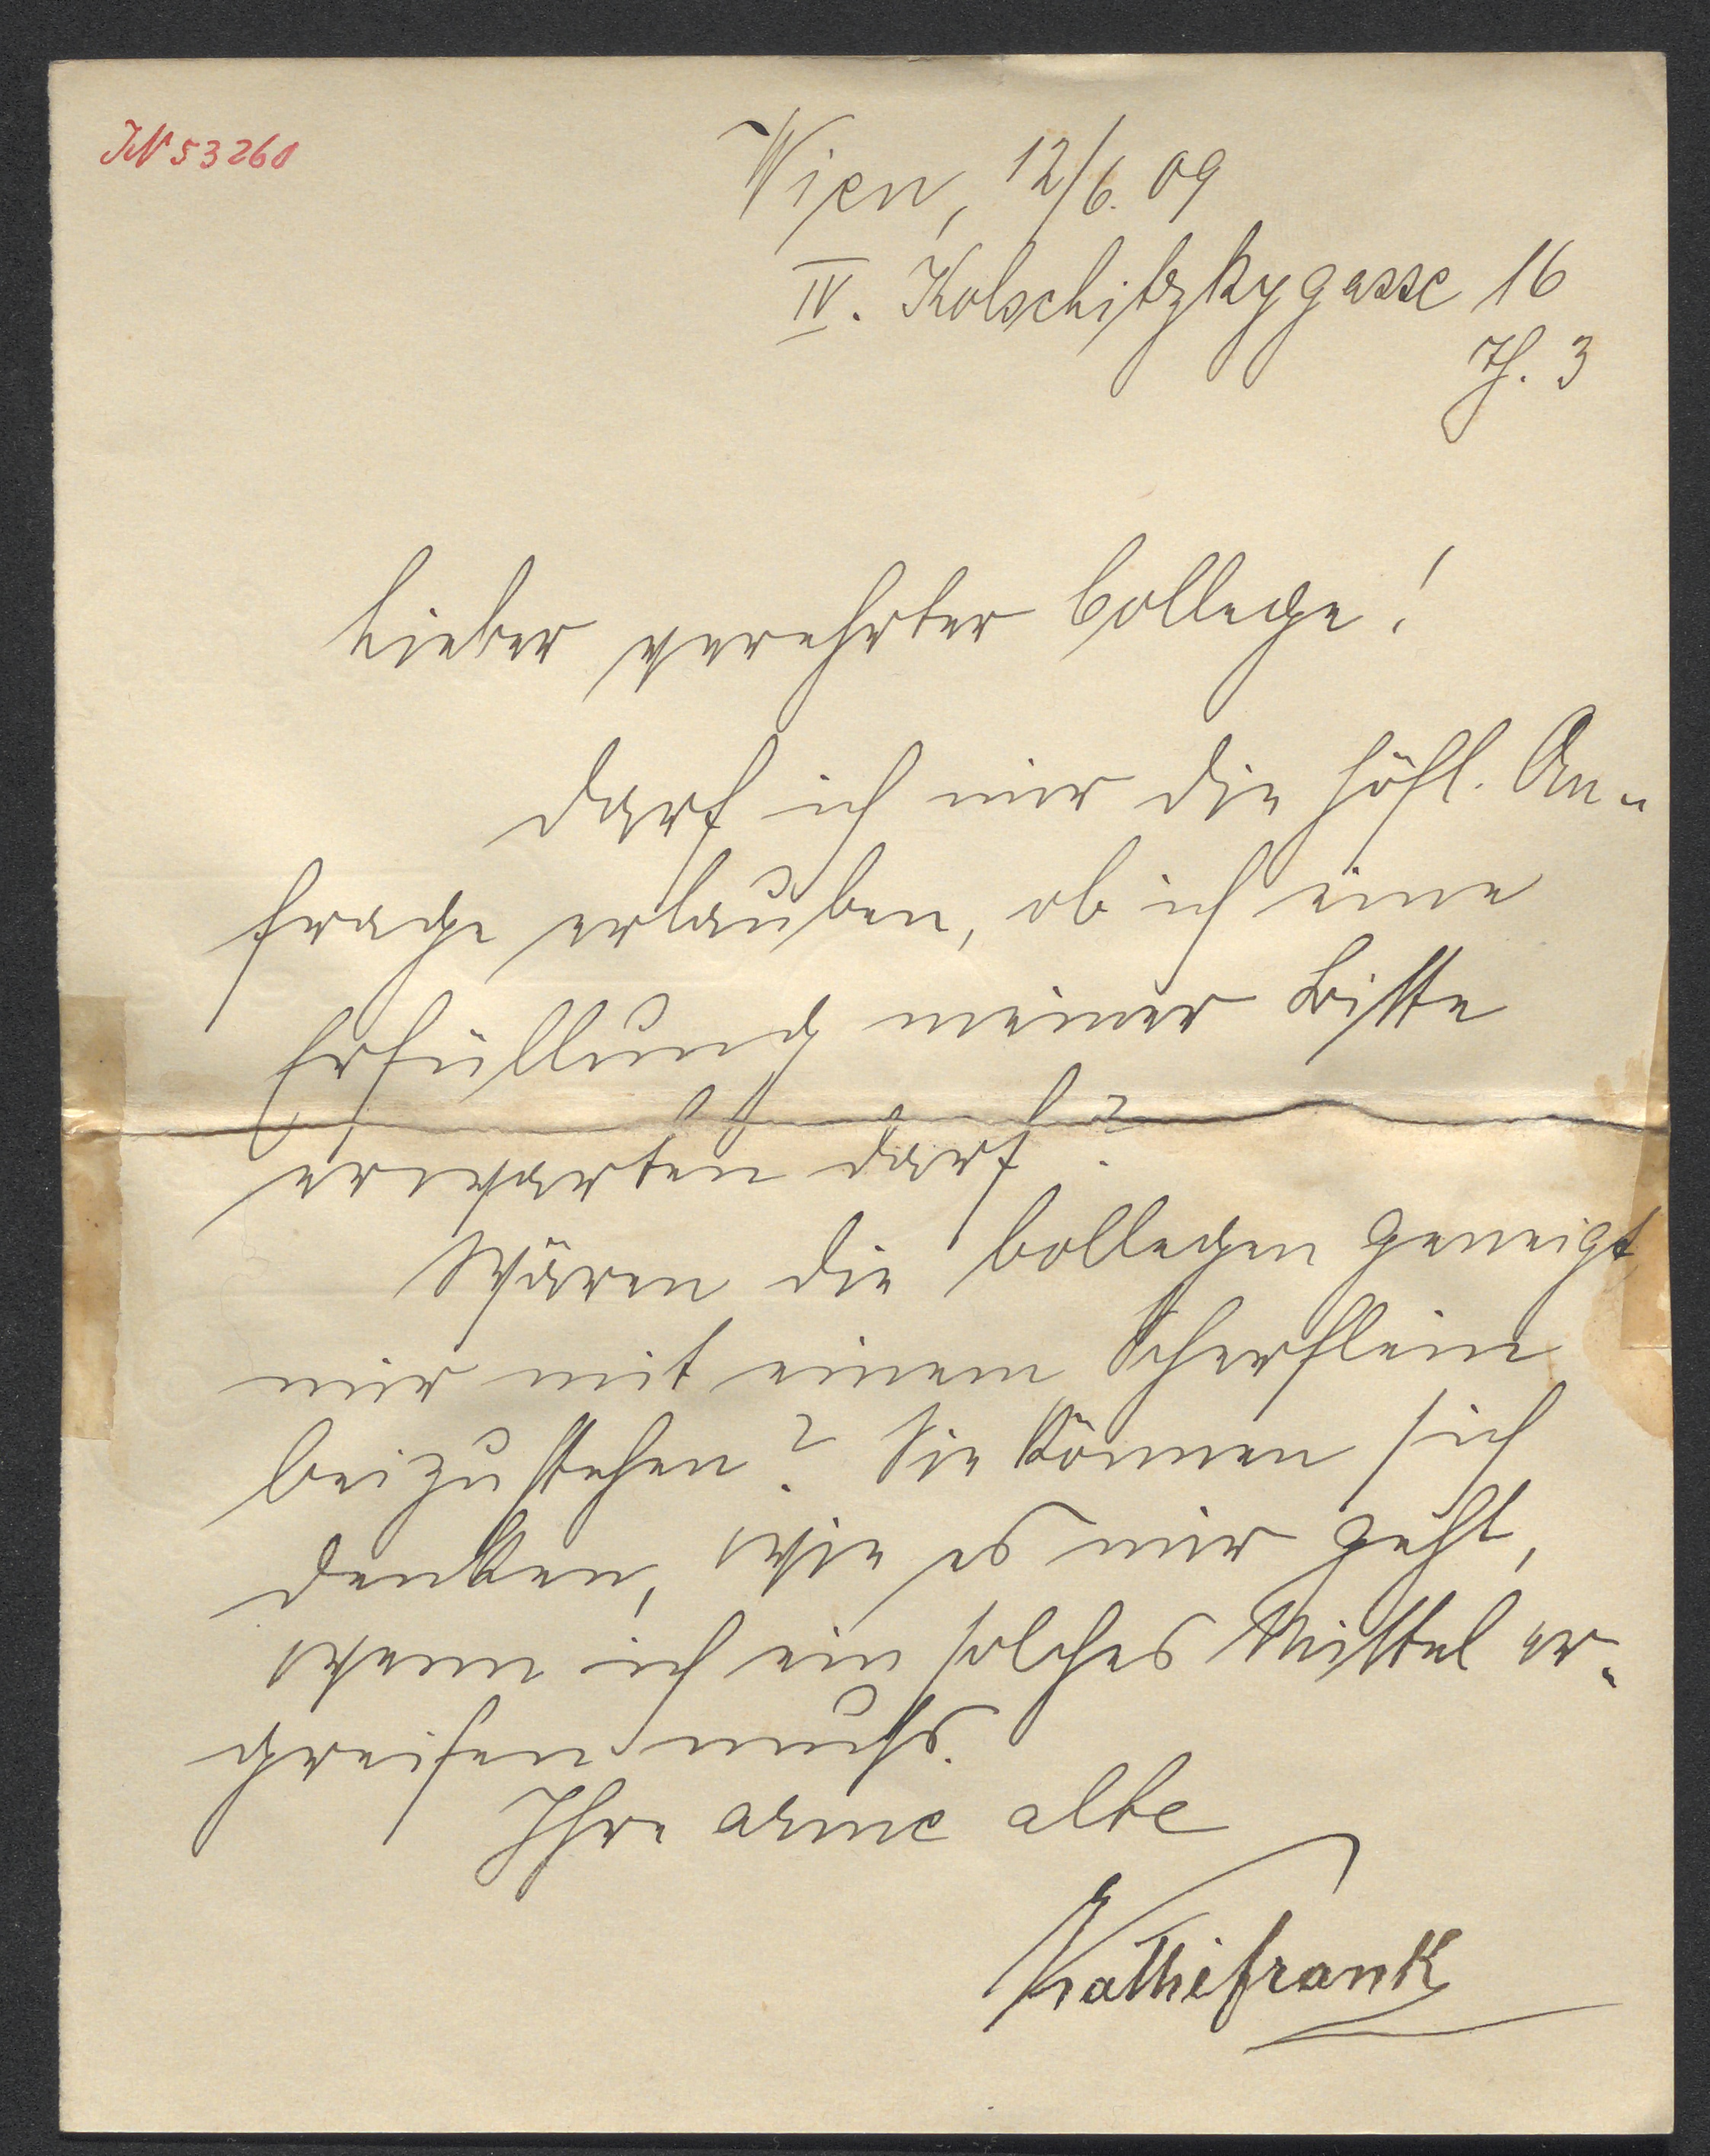 IN 53260
Wien, 12/6. 09
IV. Kolschitzkygasse 16
Th. 3
Lieber verehrter College!
Darf ich mir die höfl. An-
frage erlauben, ob ich eine
Erfüllung meiner Bitte
erwarten darf?
Wären die Collegen geneigt,
mir mit einem Scherflein
beizustehen? Sie können sich
denken, wie es mir geht,
wenn ich ein solches Mittel er-
greifen muß.
Ihre arme alte
Kathi Frank